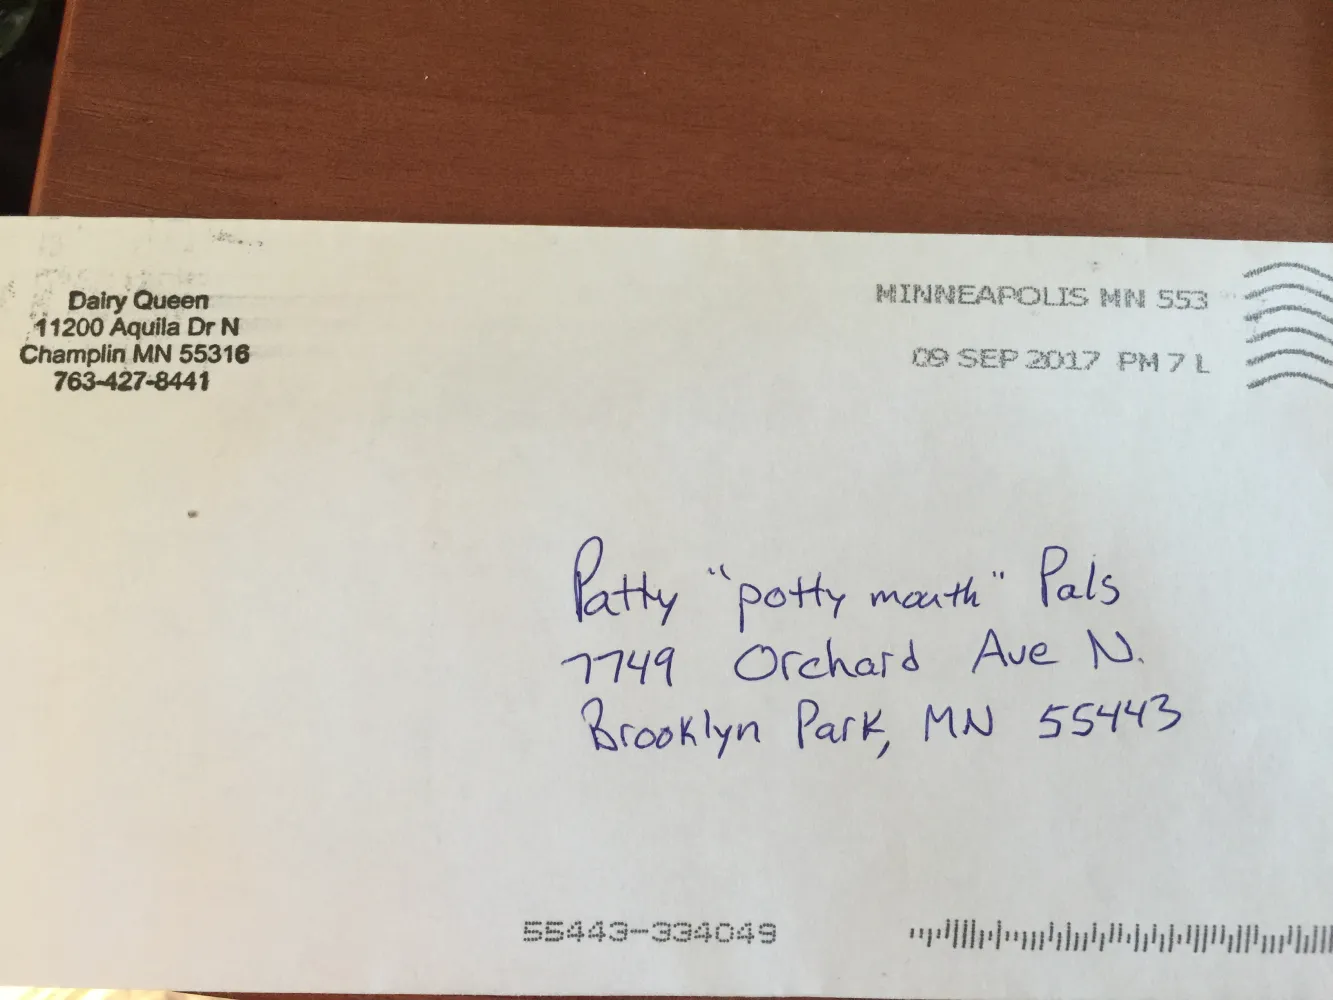 Dairy Queen
11200 Aquila Dr N
Champlin MN 55316
763-427-8441
MINNEAPOLIS MN 553
09 SEP 2017 PM 7 L
Patty "potty mouth" Pals
7749 Orchard Ave N.
Brooklyn Park, MN 55443
55443-334049